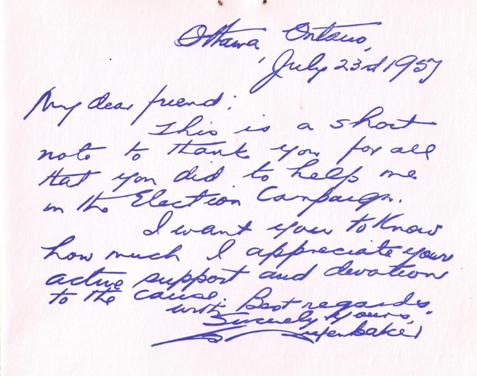 Ottawa, Ontario,
July 23rd 1957
My dear friend:
This is a short
note to thank you for all
that you did to help me
in the Election Campaign.
I want you to know
how much I appreciate your
active support and devotion
to the cause. Best regards,
with
Sincerely Yours,